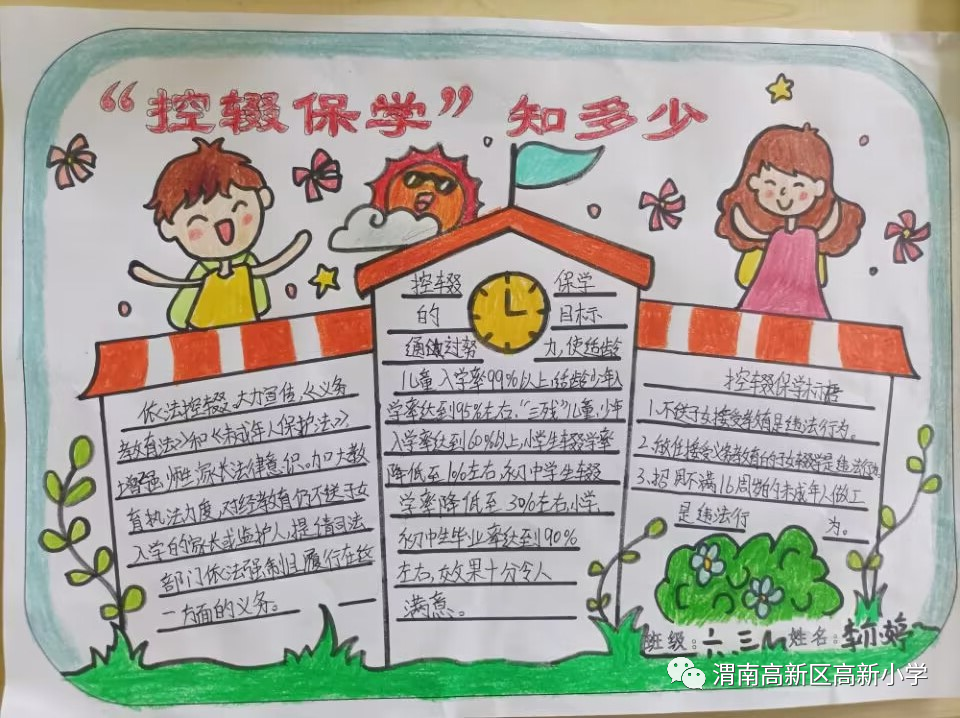 “控辍保学”知多少
依法控辍,大力宣传,《义务
教育法》和《未成年人保护法》,
增强师生,家长法律意识。加大教
育执法力度,对经教育仍不送子女
入学的家长或监护人,提请司法
部门依法强制归履行在这
一方面的义务。
控辍 保学
的 目标
通过努 力,使适龄
儿童入学率99%以上,适龄少年入
学率达到95%左右,“三残”儿童,少年
入学率达到60%以上,小学生辍学率
降低至1%左右,初中学生辍
学率降低至3%左右,小学,
初中生毕业率达到90%
左右,效果十分令人
满意。
控辍保学标语
1.不送子女接受教育是违法行为。
2.放任接受义务教育的子女辍学是违法行为
3.招用不满16周岁的未成年人做工
是违法行 为。
班级:六.三 姓名:
渭南高新区高新小学